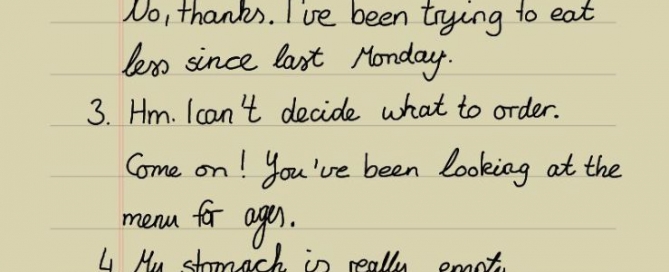 No, thanks. I've been trying to eat
less since last Monday.
3. Hm. I can't decide what to order.
Come on! You've been looking at the
menu for ages.
4 My stomach is really empty